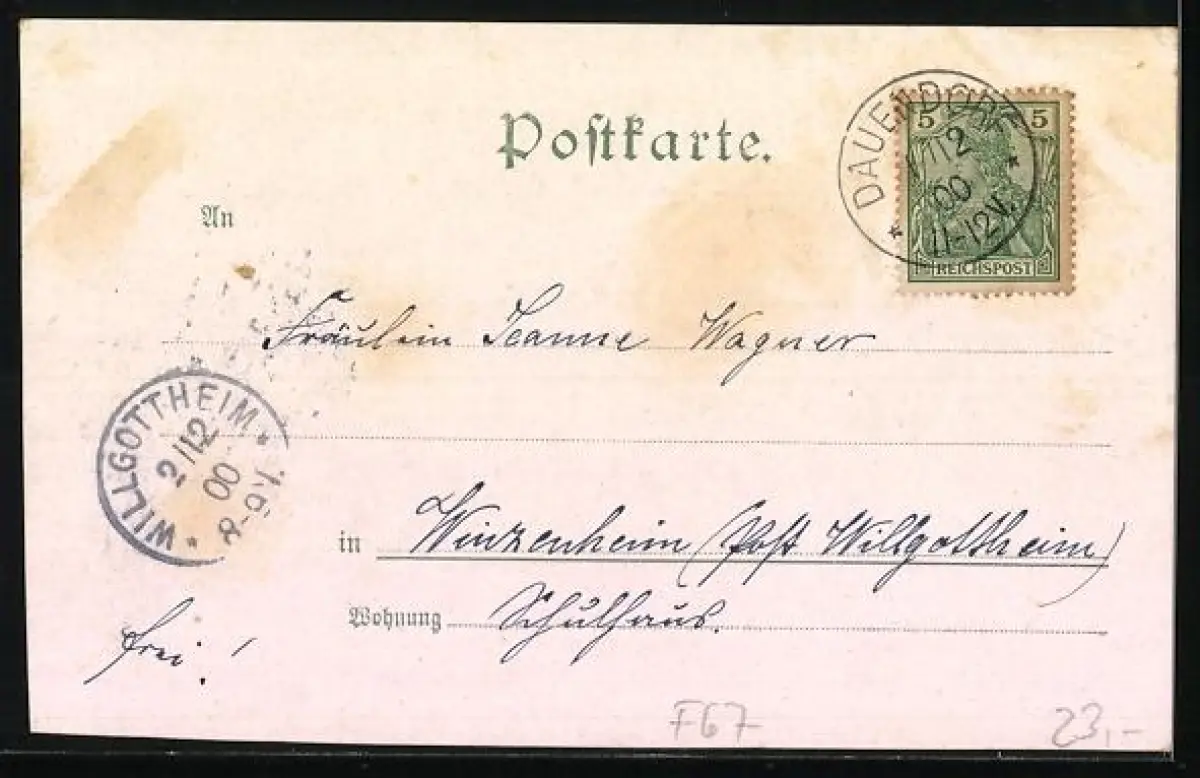 Postkarte.
DAUENDORF
1/12
00
11-12V.
5 5
REICHSPOST
An
Fräulein Jeanne Wagner
WILLGOTTHEIM
2/12
00
8-9V.
in Winzenheim (Post Willgottheim)
Wohnung Schulhaus.
frei!
F67
23,-